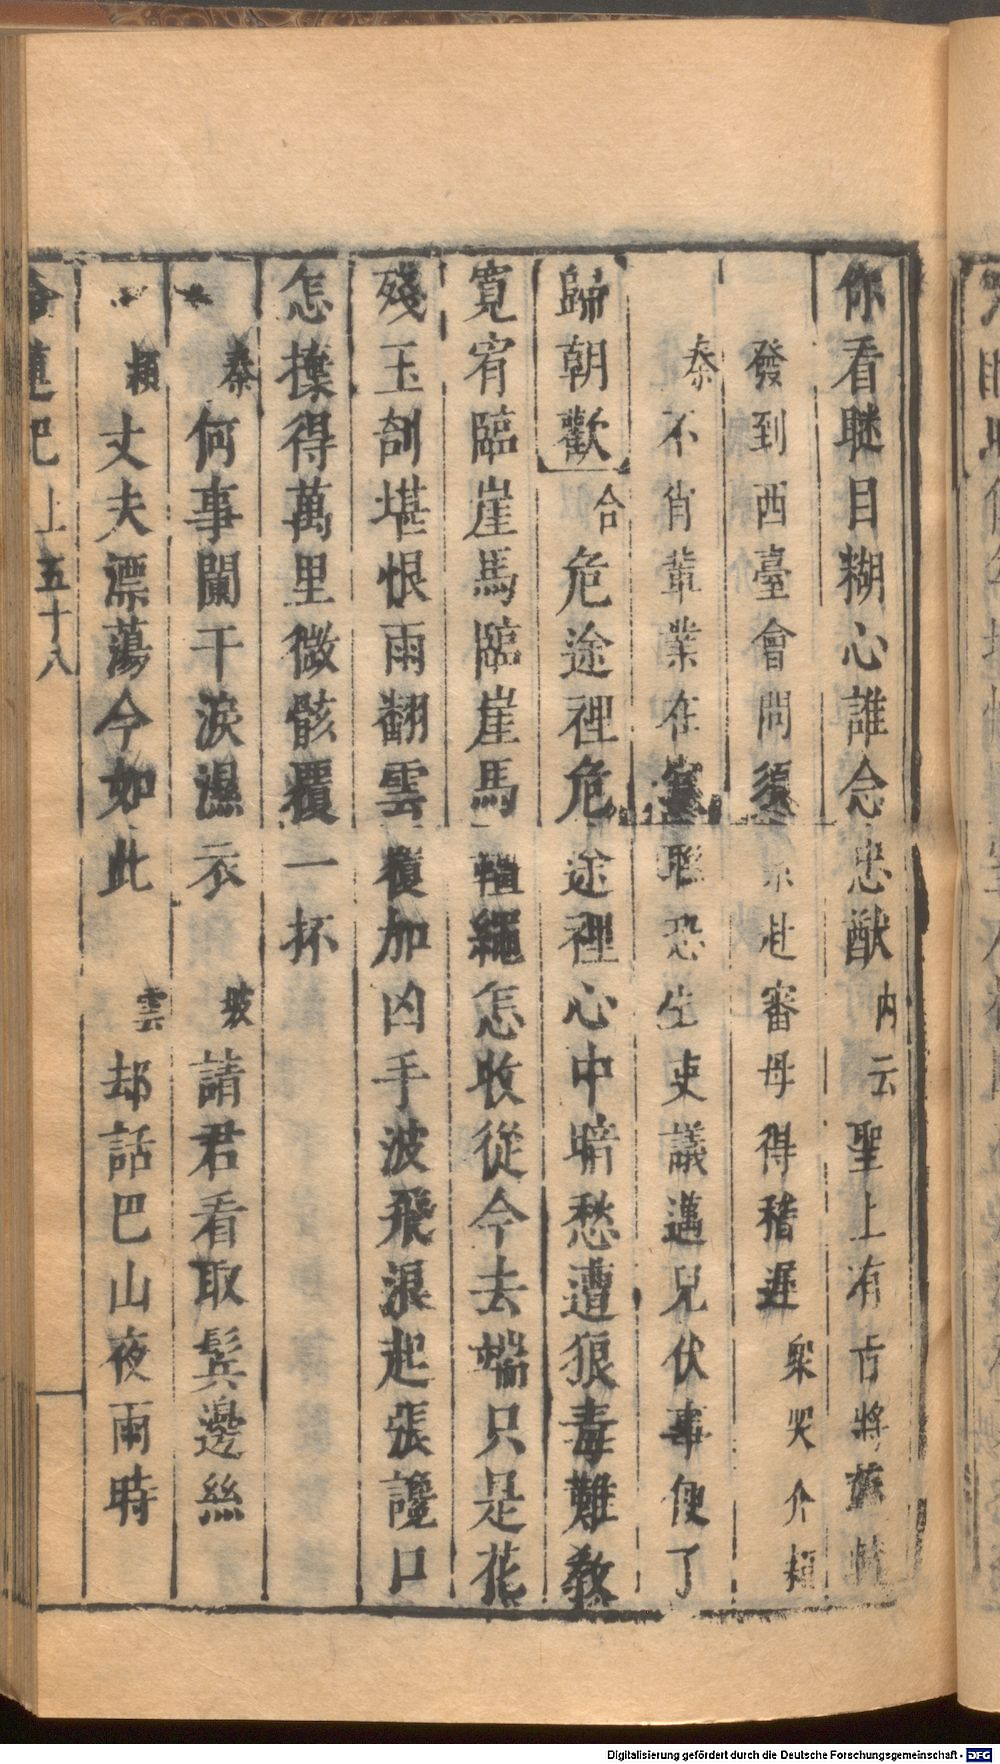 你看瞇目糊心誰念忠猷内云聖上有旨將蘇軾
發到西臺會問須赴審毋得稽遲衆哭介
秦不肖輩業在恐生吏議邁兄伏事便了
歸朝歡合危途裡危途裡心中暗愁遭狼毒難敎
寛宥臨崖馬臨崖馬韁繩怎收從今去端只是花
殘玉刮堪恨雨翻雲覆加凶手波飛浪起張讒口
怎撲得萬里微骸覆一抔
秦何事闌干淚濕衣坡請君看取鬂邊絲
穎丈夫漂蕩今如此雲却話巴山夜雨時
蓮記上五十八
Digitalisierung gefördert durch die Deutsche Forschungsgemeinschaft - DFG